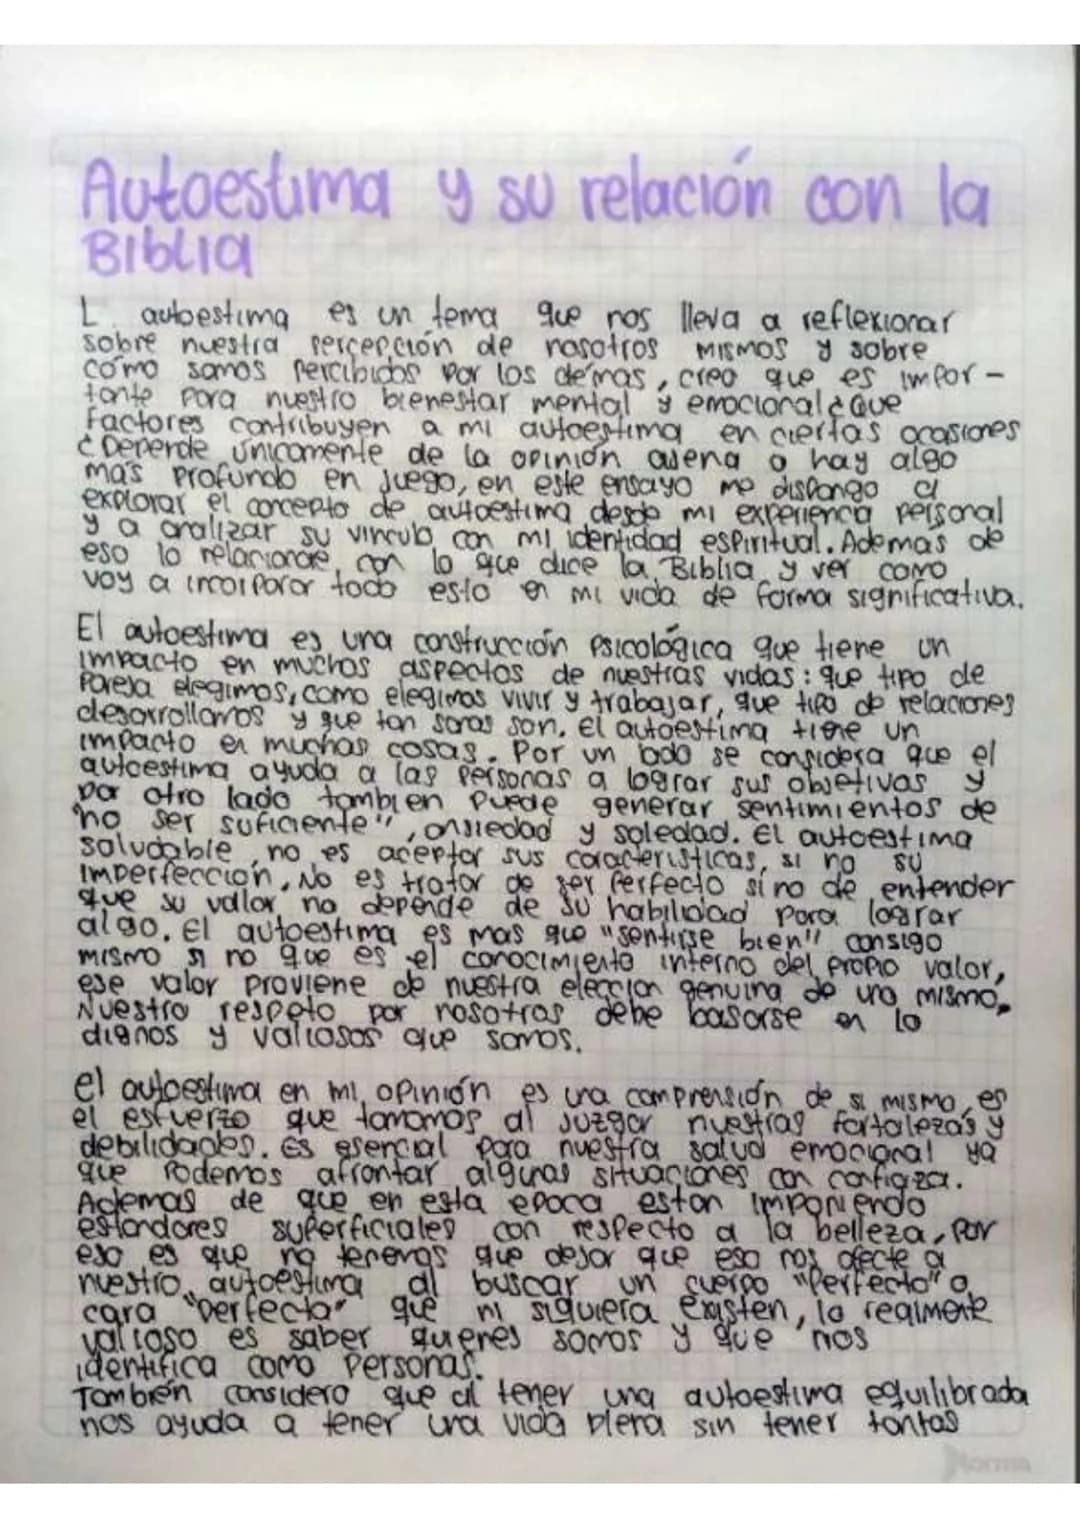 Autoestima y su relación con la
Biblia
L autoestima es un tema que nos lleva a reflexionar
sobre nuestra percepción de nosotros mismos y sobre
como somos percibidos por los demas, creo que es impor-
tante para nuestro bienestar mental y emocional¿Que
factores contribuyen a mi autoestima en ciertas ocasiones
¿Depende únicamente de la opinión ajena o hay algo
mas profundo en juego, en este ensayo me dispongo a
explorar el concepto de autoestima desde mi experiencia personal
y a analizar su vinculo con mi identidad espiritual. Ademas de
eso lo relacionare con lo que dice la Biblia y ver como
voy a incorporar todo esto en mi vida de forma significativa.
El autoestima es una construcción psicológica que tiene un
impacto en muchos aspectos de nuestras vidas: que tipo de
pareja elegimos, como elegimos vivir y trabajar, que tipo de relaciones
desarrollamos y que tan sanas son. El autoestima tiene un
impacto en muchas cosas. Por un lado se considera que el
autoestima ayuda a las personas a lograr sus objetivos y
por otro lado tambien puede generar sentimientos de
"no ser suficiente", ansiedad y soledad. El autoestima
saludable, no es aceptar sus caracteristicas, si no su
imperfección. No es tratar de ser perfecto sino de entender
que su valor no depende de su habilidad para lograr
algo. El autoestima es mas que "sentirse bien" consigo
mismo si no que es el conocimiento interno del propio valor,
ese valor proviene de nuestra eleccion genuina de uno mismo.
Nuestro respeto por nosotros debe basarse en lo
dignos y valiosos que somos.
el autoestima en mi opinión es una comprensión de si mismo, es
el esfuerzo que tomamos al juzgar nuestras fortalezas y
debilidades. Es esencial para nuestra salud emocional ya
que podemos afrontar algunas situaciones con confianza.
Ademas de que en esta epoca estan imponiendo
estandares superficiales con respecto a la belleza, por
eso es que no tenemos que dejar que eso nos afecte a
nuestro autoestima al buscar un cuerpo "perfecto" o
cara "perfecta" que ni siquiera existen, lo realmente
valioso es saber quienes somos y que nos
identifica como personas.
También considero que al tener una autoestima equilibrada
nos ayuda a tener una vida plena sin tener tantas
Norma